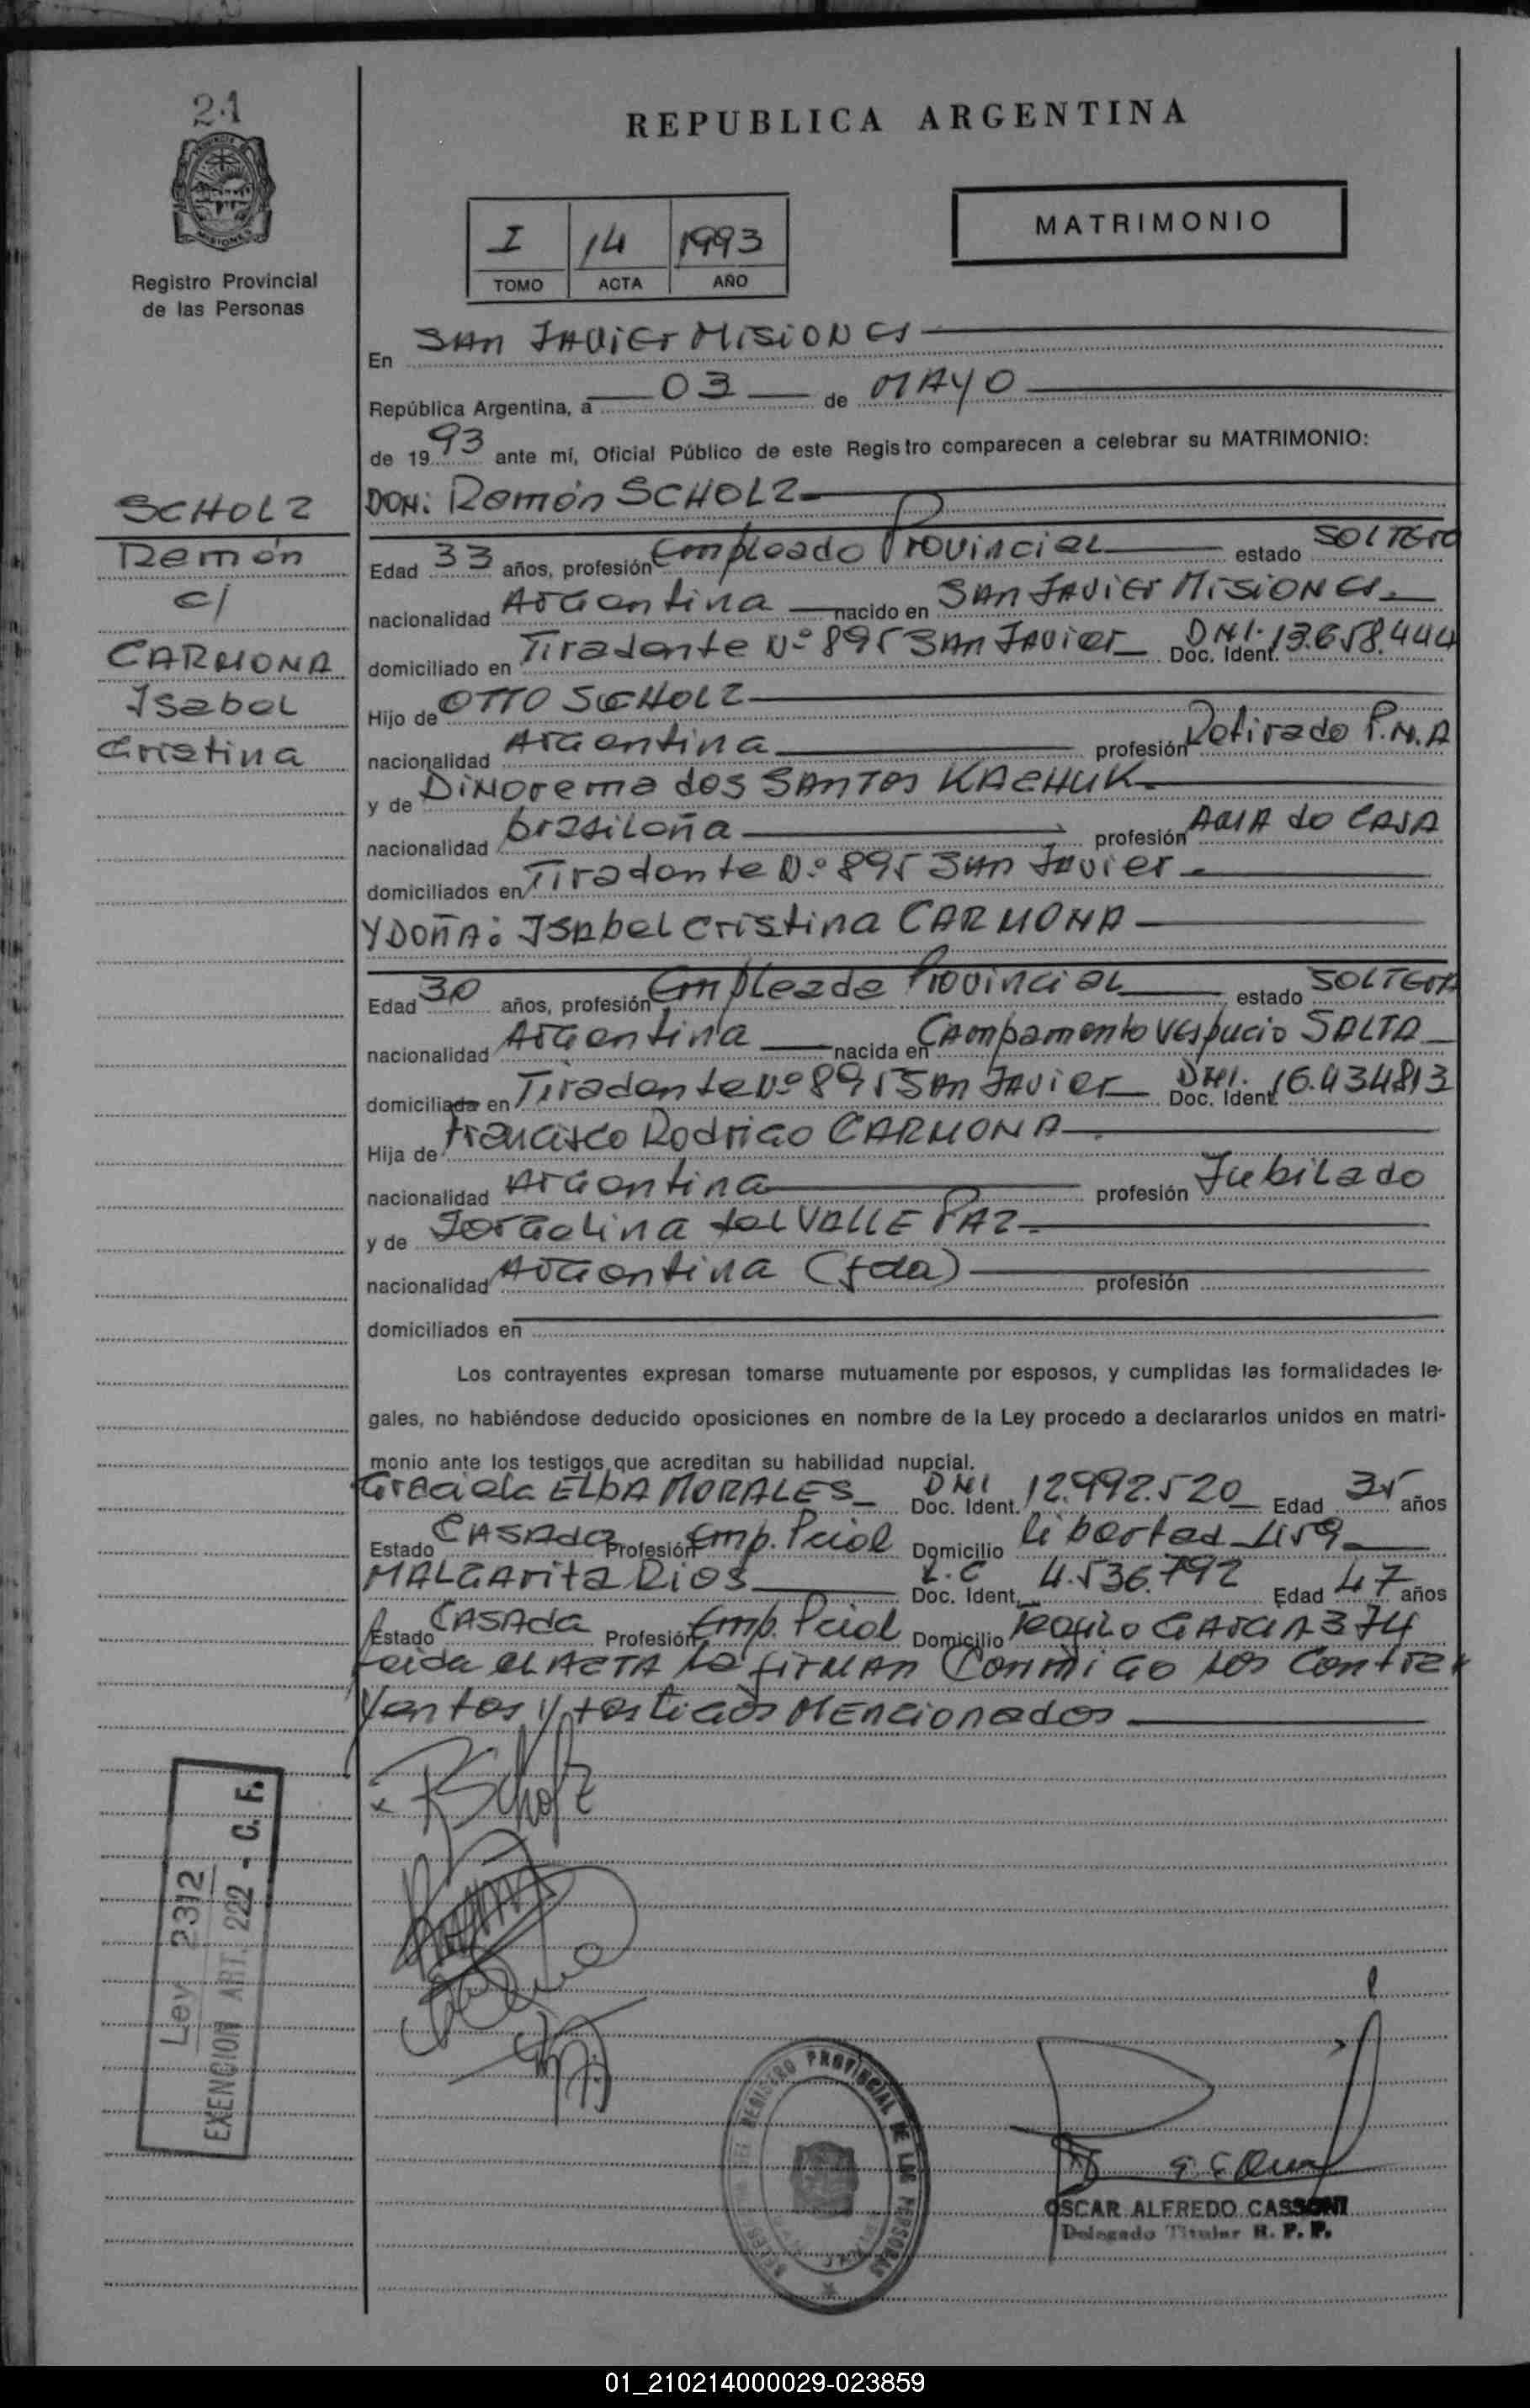 21
REPUBLICA ARGENTINA
I 14 1993
TOMO ACTA AÑO
MATRIMONIO
Registro Provincial
de las Personas
En SAN JAVIER MISIONES
República Argentina, a 03 de MAYO
de 1993 ante mí, Oficial Público de este Registro comparecen a celebrar su MATRIMONIO:
SCHOLZ
Ramón
c/
CARMONA
Isabel
Cristina
DON: Ramón SCHOLZ
Edad 33 años, profesión Empleado Provincial estado SOLTERO
nacionalidad Argentina nacido en SAN JAVIER MISIONES
domiciliado en Tiradente Nº 895 SAN JAVIER DNI. Doc. Ident. 13.658.444
Hijo de OTTO SCHOLZ
nacionalidad Argentina profesión Retirado P.N.A
y de Dinorema dos SANTOS KACHUK
nacionalidad brasileña profesión AMA de CASA
domiciliados en Tiradente Nº 895 SAN Javier
Y DOÑA: Isabel Cristina CARMONA
Edad 30 años, profesión Empleada Provincial estado SOLTERA
nacionalidad Argentina nacida en Campamento Vespucio SALTA
domiciliada en Tiradente Nº 895 SAN JAVIER DNI. Doc. Ident. 16.434813
Hija de Francisco Rodrigo CARMONA
nacionalidad Argentina profesión Jubilado
y de Jorgelina del VALLE PAZ
nacionalidad Argentina (fda) profesión
domiciliados en
Los contrayentes expresan tomarse mutuamente por esposos, y cumplidas las formalidades le-
gales, no habiéndose deducido oposiciones en nombre de la Ley procedo a declararlos unidos en matri-
monio ante los testigos que acreditan su habilidad nupcial.
Graciela ELBA MORALES DNI Doc. Ident. 12.992.520 Edad 35 años
Estado CASADA Profesión Emp. Pcial Domicilio Libertad 459
MALGARITA RIOS L.C Doc. Ident. 4.536.792 Edad 47 años
Estado CASADA Profesión Emp. Pcial Domicilio Teofilo GARCIA 374
Leida el ACTA la FIRMAN Conmigo los Contra
yentes y testigos MENCIONADOS
RScholz
Ley 2312
EXENCION ART. 222 - C. F.
REGISTRO PROVINCIAL DE LAS PERSONAS
OSCAR ALFREDO CASSONI
Delegado Titular R. P. P.
01_210214000029-023859